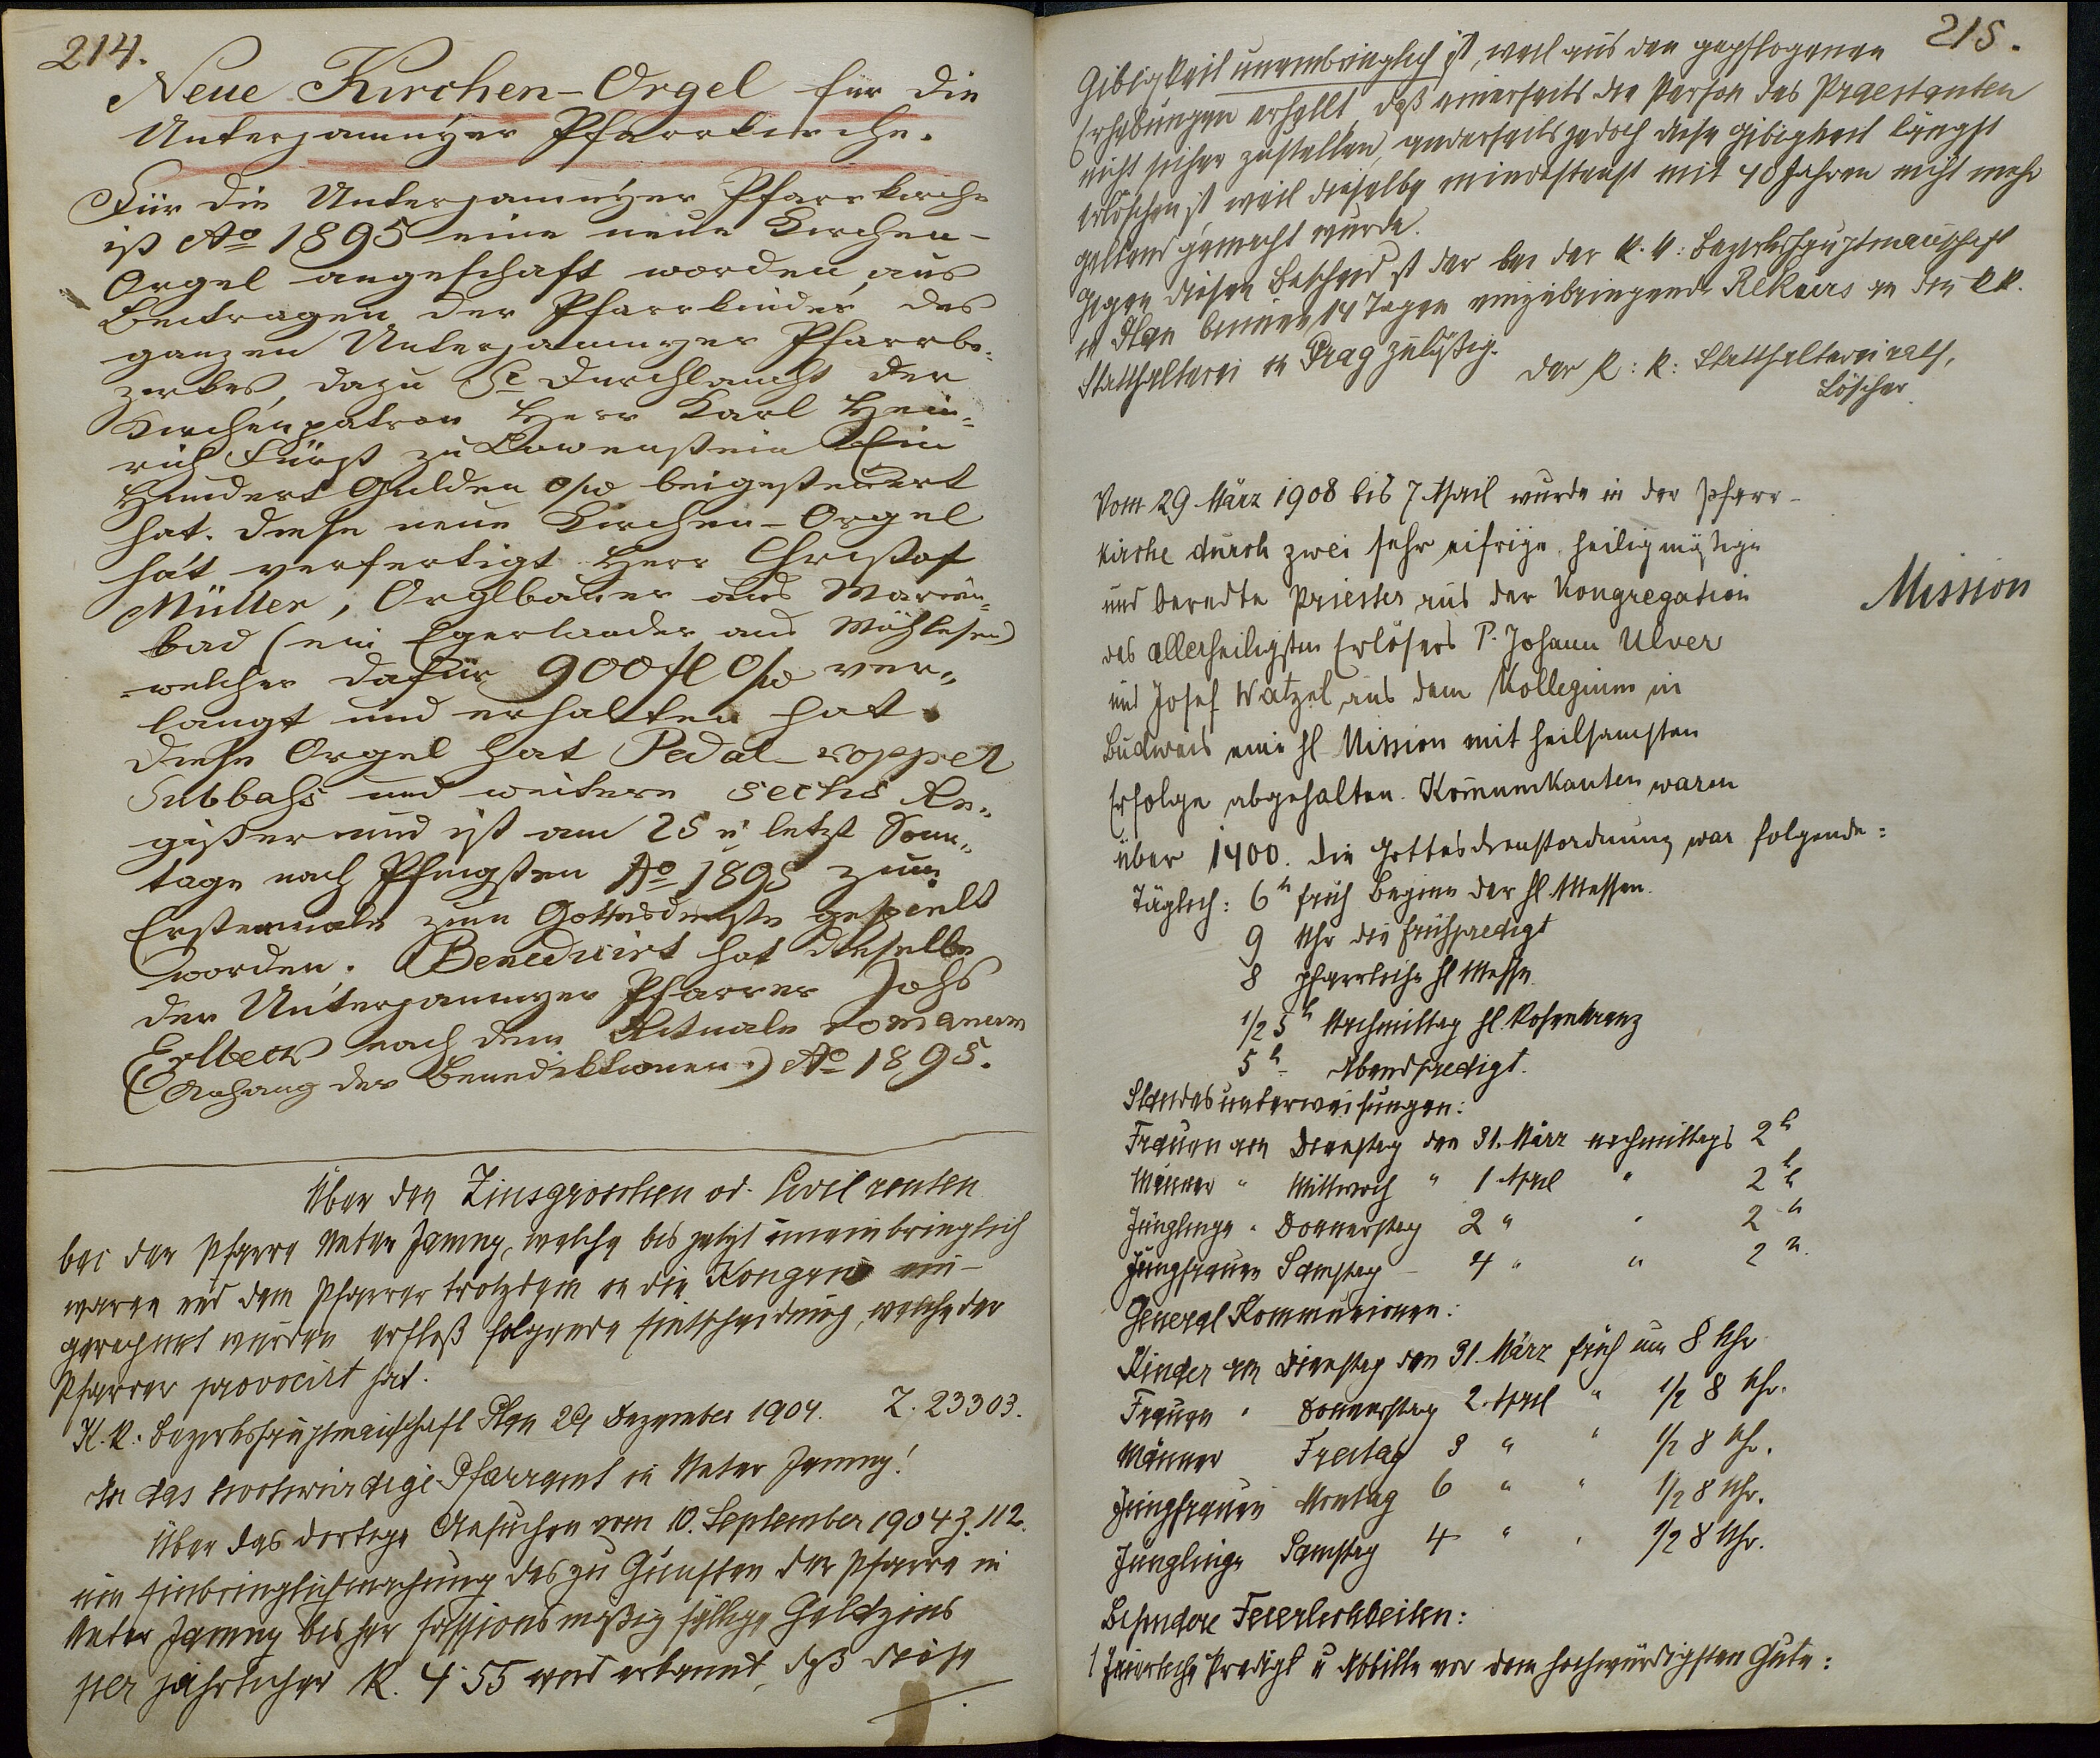 214.
Neue Kirchen-Orgel für die
Unterjamnÿer Pfarrkirche.
Für die Unterjamnÿer Pfarrkirche
ist Aº 1895 eine neue Kirchen-
Orgel angeschaft worden, aus
Beitragen der Pfarrkinder des
ganzen Unterjamnyer Pfarrbe-
zirkes, dazu Se Durchlaucht der
Kirchenpatron Herr Karl Hein-
rich Fürst zu Löwenstein Ein
Hundert Gulden ö/w beigesteuert
hat. Diese neue Kirchen-Orgel
hat verfertigt Herr Christof
Müller, Orglbauer aus Marien-
bad (ein Egerlander aus
welcher dafür 900 fl ö/w ver-
langt und erhalten hat.
Diese Orgel hat Pedal-coppel
Subbaß und weitere sechs Re-
gister und ist am 25 u letzt Sonn-
tage nach Pfingsten Aº 1895 zum
Erstenmale zum Gottesdienste gespielt
worden. Benedicirt hat dieselbe
der Unterjamnyer Pfarrer Johs
Erlbeck nach dem Rituale romanum
(Anhang der Benediktionen.) Aº 1895.
Über den Zinsgroschen od. Civil renten
bei der Pfarre Unter Jamny, welche bis jetzt uneinbringlich
waren und dem Pfarrer trotzdem in die Kongrua ein-
gerechnet wurden erfloß folgende Entscheidung, welche der
Pfarrer provocirt hat.
K. k. Bezirkshauptmannschaft Plan 29 Dezember 1904. Z. 23303.
An das hochwürdige Pfarramt in Unter Jamny!
Über das dortige Ansuchen vom 10. September 1904 Z. 112.
um Einbringlichmachung des zu Gunsten der Pfarre in
Unter Jamny bisher fassionsmäßig fällige Geldzins
per jährlicher K. 4·55 wird erkannt, daß diese
215.
Gibigkeit uneinbringlich ist, weil aus den gepflogenen
Erhebungen erhellt, daß einerseits die Person des Praestanten
nicht sicher zustellen, anderseits jedoch diese Gibigkeit längst
erloschen ist, weil dieselbe mindestens seit 40 Jahren nicht mehr
geltend gemacht wurde.
Gegen diesen Bescheid ist der bei der k. k. Bezirkshauptmannschaft
in Plan binnen 14 Tagen einzubringende Rekurs an die k. k.
Statthalterei in Prag zuläßig.
Der k: k: Statthaltereirath,
Löscher.
Vom 29 März 1908 bis 7 April wurde in der Pfarr-
kirche durch zwei sehr eifrige, heiligmäßige
und beredte Priester aus der Kongregation
des allerheiligsten Erlösers P. Johann Ulver
und Josef Watzel aus dem Kollegium in
Budweis eine hl Mission mit heilsamsten
Mission
Erfolge abgehalten. Komunikanten waren
über 1400. Die Gottesdienstordnung war folgende:
Täglich: 6 h früh Beginn der hl. Messen.
9 Uhr die Frühpredigt
8 pfarrliche hl Messe
1/2 5 h Nachmittag hl. Rosenkranz
5 h Abendpredigt.
Standesunterweisungen:
Frauen am Dienstag den 31. März nachmittags 2 h
Männer " Mittwoch " 1 April " 2 h
Jünglinge " Donnerstag 2 " " 2 h
Jungfrauen Samstag - 4 " " 2 h.
General Kommunionen:
Kinder am Dienstag den 31. März früh um 8 Uhr
Frauen " Donnerstag 2. April " 1/2 8 Uhr.
Männer Freitag 3 " " 1/2 8 Uhr.
Jungfrauen Montag 6 " " 1/2 8 Uhr.
Jünglinge Samstag 4 " " 1/2 8 Uhr.
Besondere Feierlichkeiten:
1 Feierliche Predigt u Abbitte vor dem hochwürdigsten Gute: